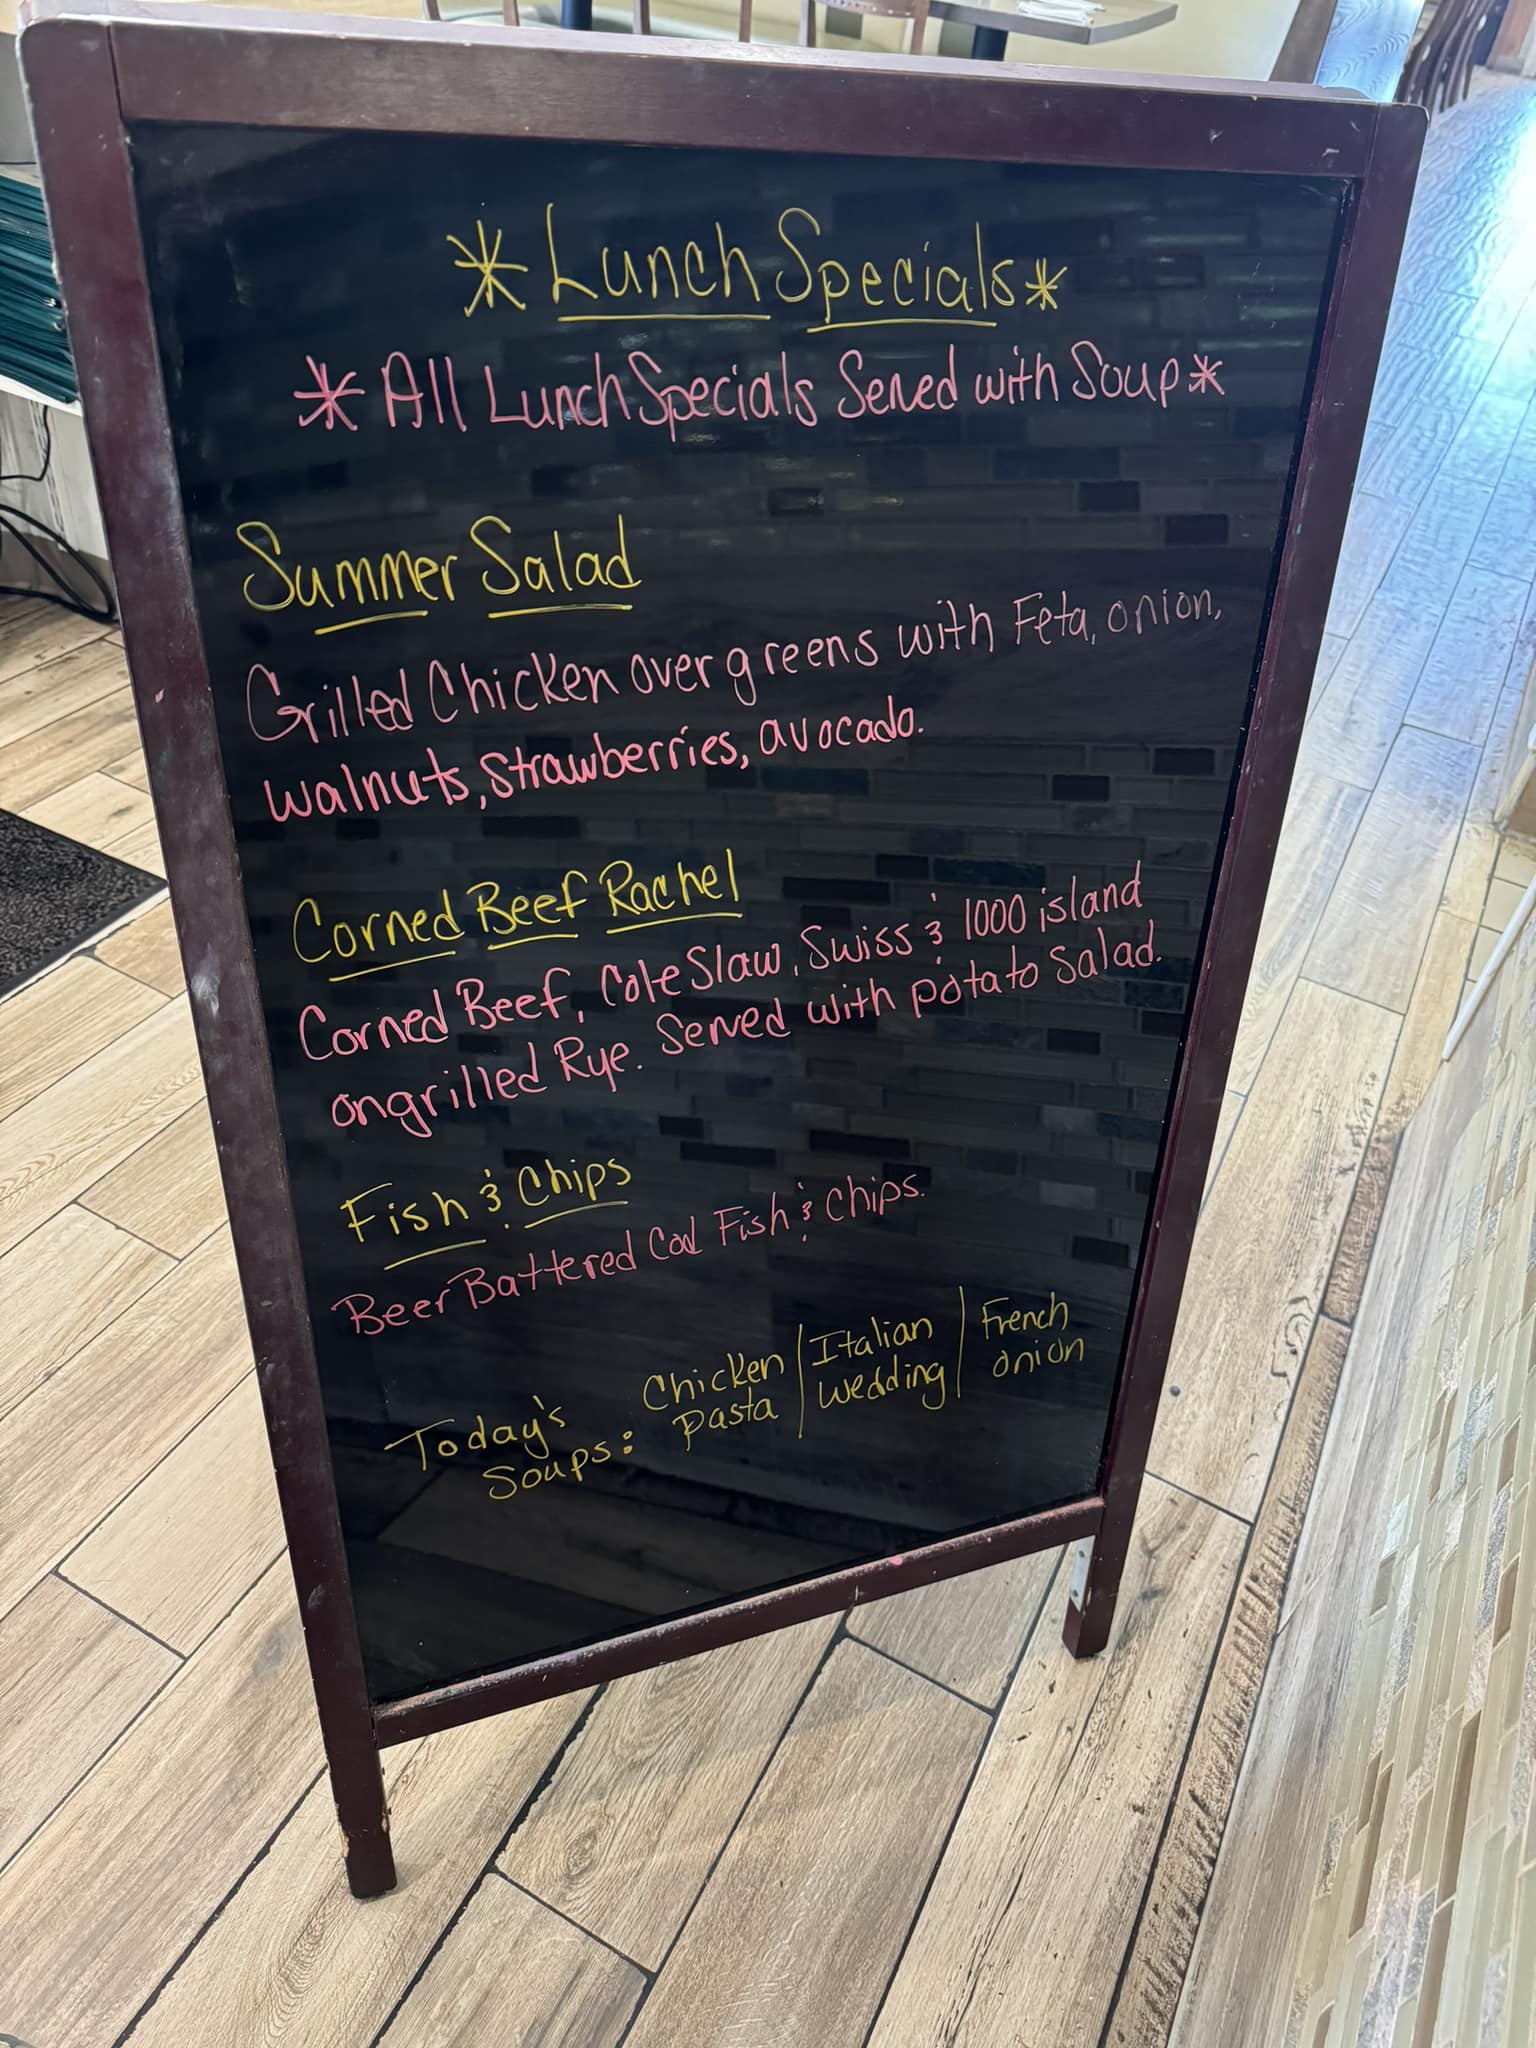 * Lunch Specials *
* All Lunch Specials Served with Soup *
Summer Salad
Grilled Chicken over greens with Feta, onion,
walnuts, strawberries, avocado.
Corned Beef Rachel
Corned Beef, Cole Slaw, Swiss & 1000 island
on grilled Rye. Served with potato Salad.
Fish & Chips
Beer Battered Cod Fish & Chips.
Today's
Soups:
Chicken
Pasta
Italian
Wedding
French
onion